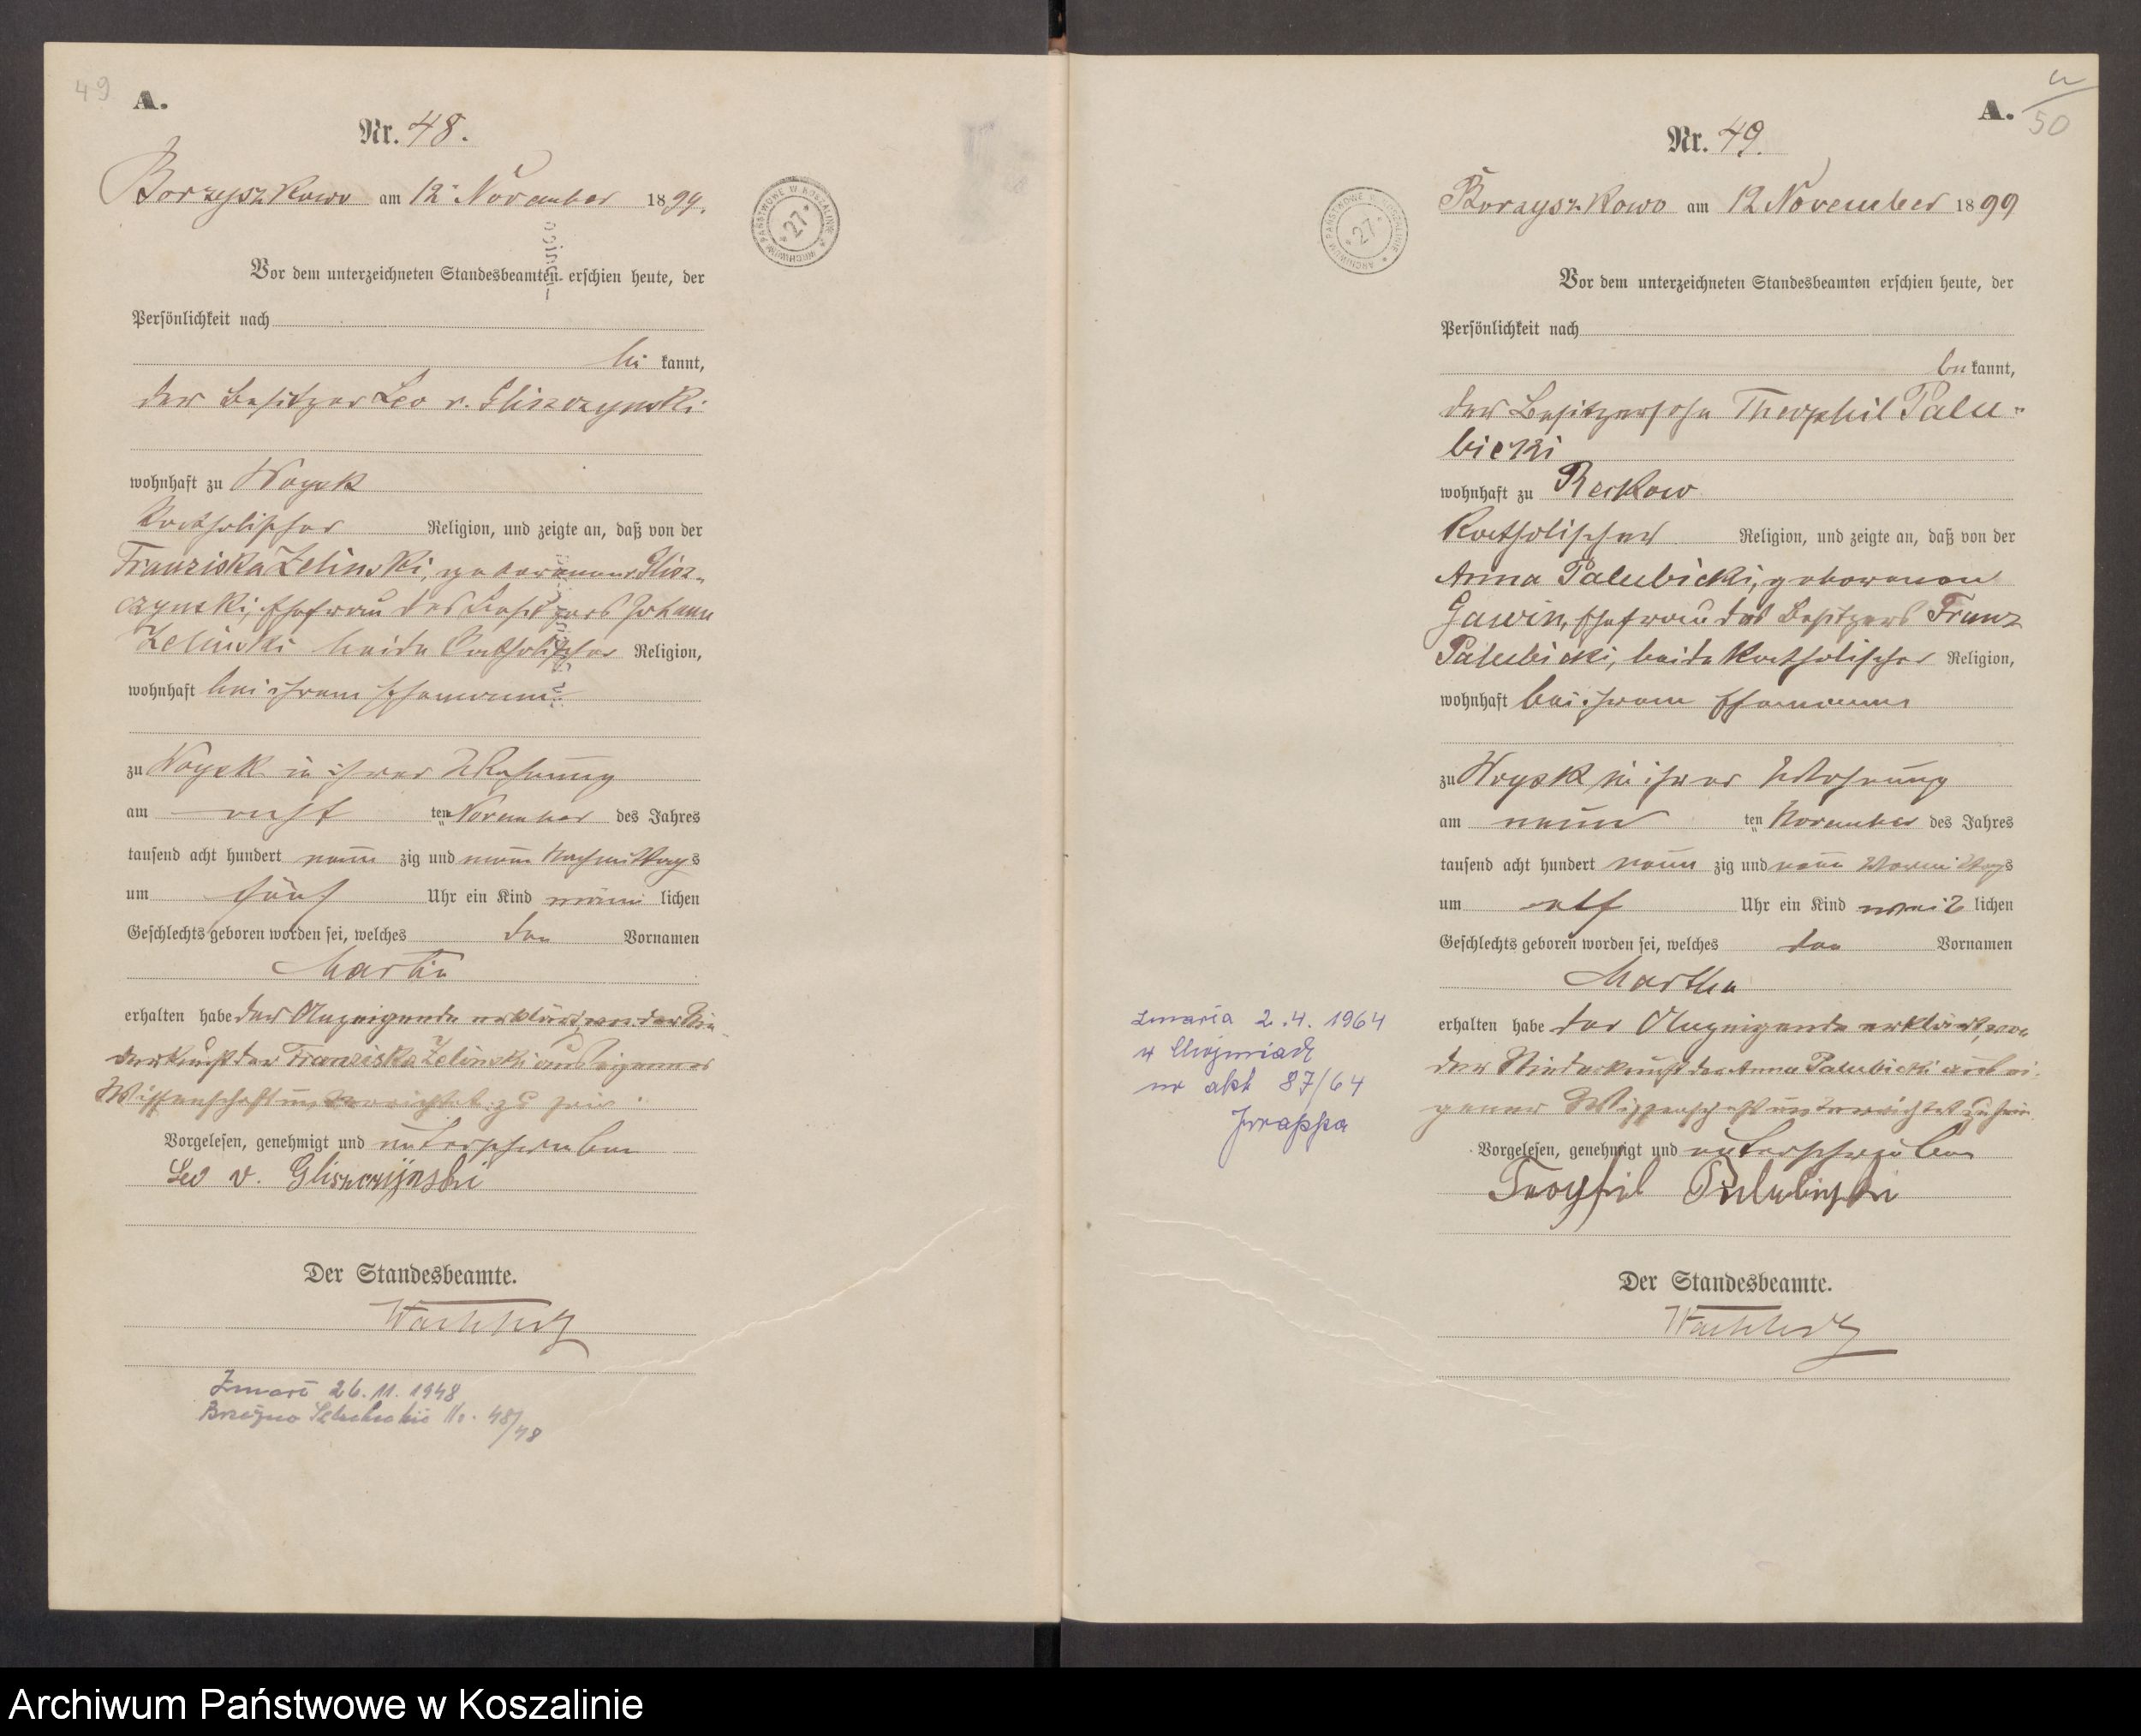 49
A.
Nr. 48.
Borzyszkowo am 12. November 1899.
ARCHIWUM PAŃSTWOWE W KOSZALINIE * 27 *
Vor dem unterzeichneten Standesbeamten erschien heute, der
Persönlichkeit nach
be kannt,
der Besitzer Leo v. Gliszczynski
wohnhaft zu Woysk
katholischer Religion, und zeigte an, daß von der
Franziska Zelinski, geborenen Glisz-
czynski, Ehefrau des Besitzers Johann
Zelinski beide katholischer Religion,
wohnhaft bei ihrem Ehemann
zu Woysk in ihrer Wohnung
am acht ten November des Jahres
tausend acht hundert neun zig und neun Nachmittags
um fünf Uhr ein Kind männ lichen
Geschlechts geboren worden sei, welches den Vornamen
Martin
erhalten habe der Anzeigende erklärt, von der Nie-
derkunft der Franziska Zelinski aus eigener
Wissenschaft unterrichtet zu sein.
Vorgelesen, genehmigt und unterschrieben
Leo v. Gliszczÿnski
Der Standesbeamte.
Zmarł 26.11.1948
Brzeźno No. 48/48
A.
50
Nr. 49.
Borzyszkowo am 12 November 1899
ARCHIWUM PAŃSTWOWE W KOSZALINIE * 27 *
Vor dem unterzeichneten Standesbeamten erschien heute, der
Persönlichkeit nach
be kannt,
der Besitzersohn Theophil Palu-
bicki
wohnhaft zu Reckow
katholischer Religion, und zeigte an, daß von der
Anna Palubicki, geborenen
Gawin, Ehefrau des Besitzers Franz
Palubicki, beide katholischer Religion,
wohnhaft bei ihrem Ehemann
zu Woysk in ihrer Wohnung
am neun ten November des Jahres
tausend acht hundert neun zig und neun Vormittags
um elf Uhr ein Kind weib lichen
Geschlechts geboren worden sei, welches den Vornamen
Martha
erhalten habe der Anzeigende erklärt, von
der Niederkunft der Anna Palubicki aus ei-
gener Wissenschaft unterrichtet zu sein
Vorgelesen, genehmigt und unterschrieben
Teofil Palubicki
Der Standesbeamte.
zmarła 2.4.1964
w
nr akt 87/64
Archiwum Państwowe w Koszalinie